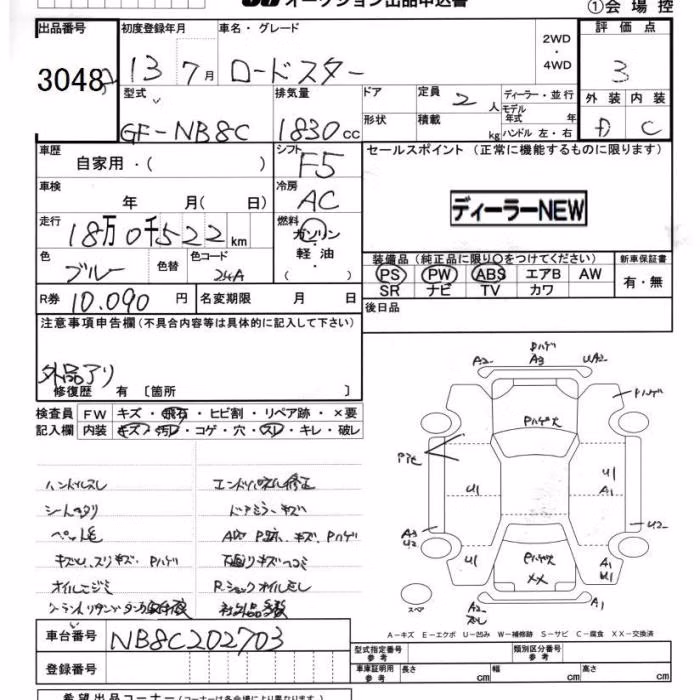 オークション出品申込書
①会場控
出品番号 初度登録年月 車名・グレード 2WD・4WD 評価点
3048 13 7月 ロードスター 3
型式 排気量 ドア 定員 2 人 ディーラー・並行 外装 内装
モデル年式 年
GF-NB8C 1830cc 形状 積載 kg ハンドル 左・右 D C
車歴 自家用・( ) シフト F5 セールスポイント (正常に機能するものに限ります)
車検 年 月( 日) 冷房 AC
ディーラーNEW
走行 18万0千522km 燃料 ガソリン・軽油・( )
色 ブルー 色替 色コード 24A
装備品(純正品に限り○をつけてください) 新車保証書
PS PW ABS エアB AW 有・無
SR ナビ TV カワ
R券 10.090円 名変期限 月 日 後日品
注意事項申告欄(不具合内容等は具体的に記入して下さい)
外品アリ
修復歴 有〔箇所 〕
検査員 FW キズ・飛石・ヒビ割・リペア跡・×要
記入欄 内装 キズ・汚れ・コゲ・穴・スレ・キレ・破レ
ハンドルスレ エンドパネル修正
ドアミラーキズ
ペット毛
オイルニジミ R.ショックオイルモレ
社外品多数
A2 Pハゲ A3 UA2
Pハゲ
Pハゲ大
U1 U1 A1
A3 U2 U2
Pハゲ大 XX
U1 A1 U1
スペア A2 A1
A-キズ E-エクボ U-凹み W-補修跡 S-サビ C-腐食 XX-交換済
車台番号 NB8C202703
登録番号
型式指定番号 参考 類別区分番号 参考
車庫証明用 参考 長さ 幅 高さ
希望出品コーナー(コーナーは各会場により異なります)